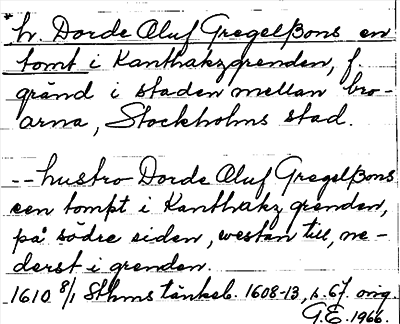 *h. Dorde Oluf Gregelßons en
tomt i Kanthakzgrenden, f.
gränd i staden mellan bro-
arna, Stockholms stad.
-- hustro Dorde Oluf Gregelßons
een tompt i Kanthakz grenden,
på södre siden, westen till, ne-
derst i grenden.
1610 8/1 Sthms tänkeb. 1608-13, s. 67. orig.
G.E. 1966.